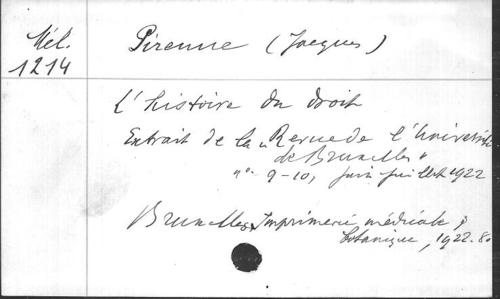 Mél.
1214
Pirenne (Jacques)
L'histoire du droit
Extrait de la „Revue de l'Université
de Bruxelles"
n° 9-10, juin juillet 1922
Bruxelles, Imprimerie médicale &
botanique, 1922. 8o